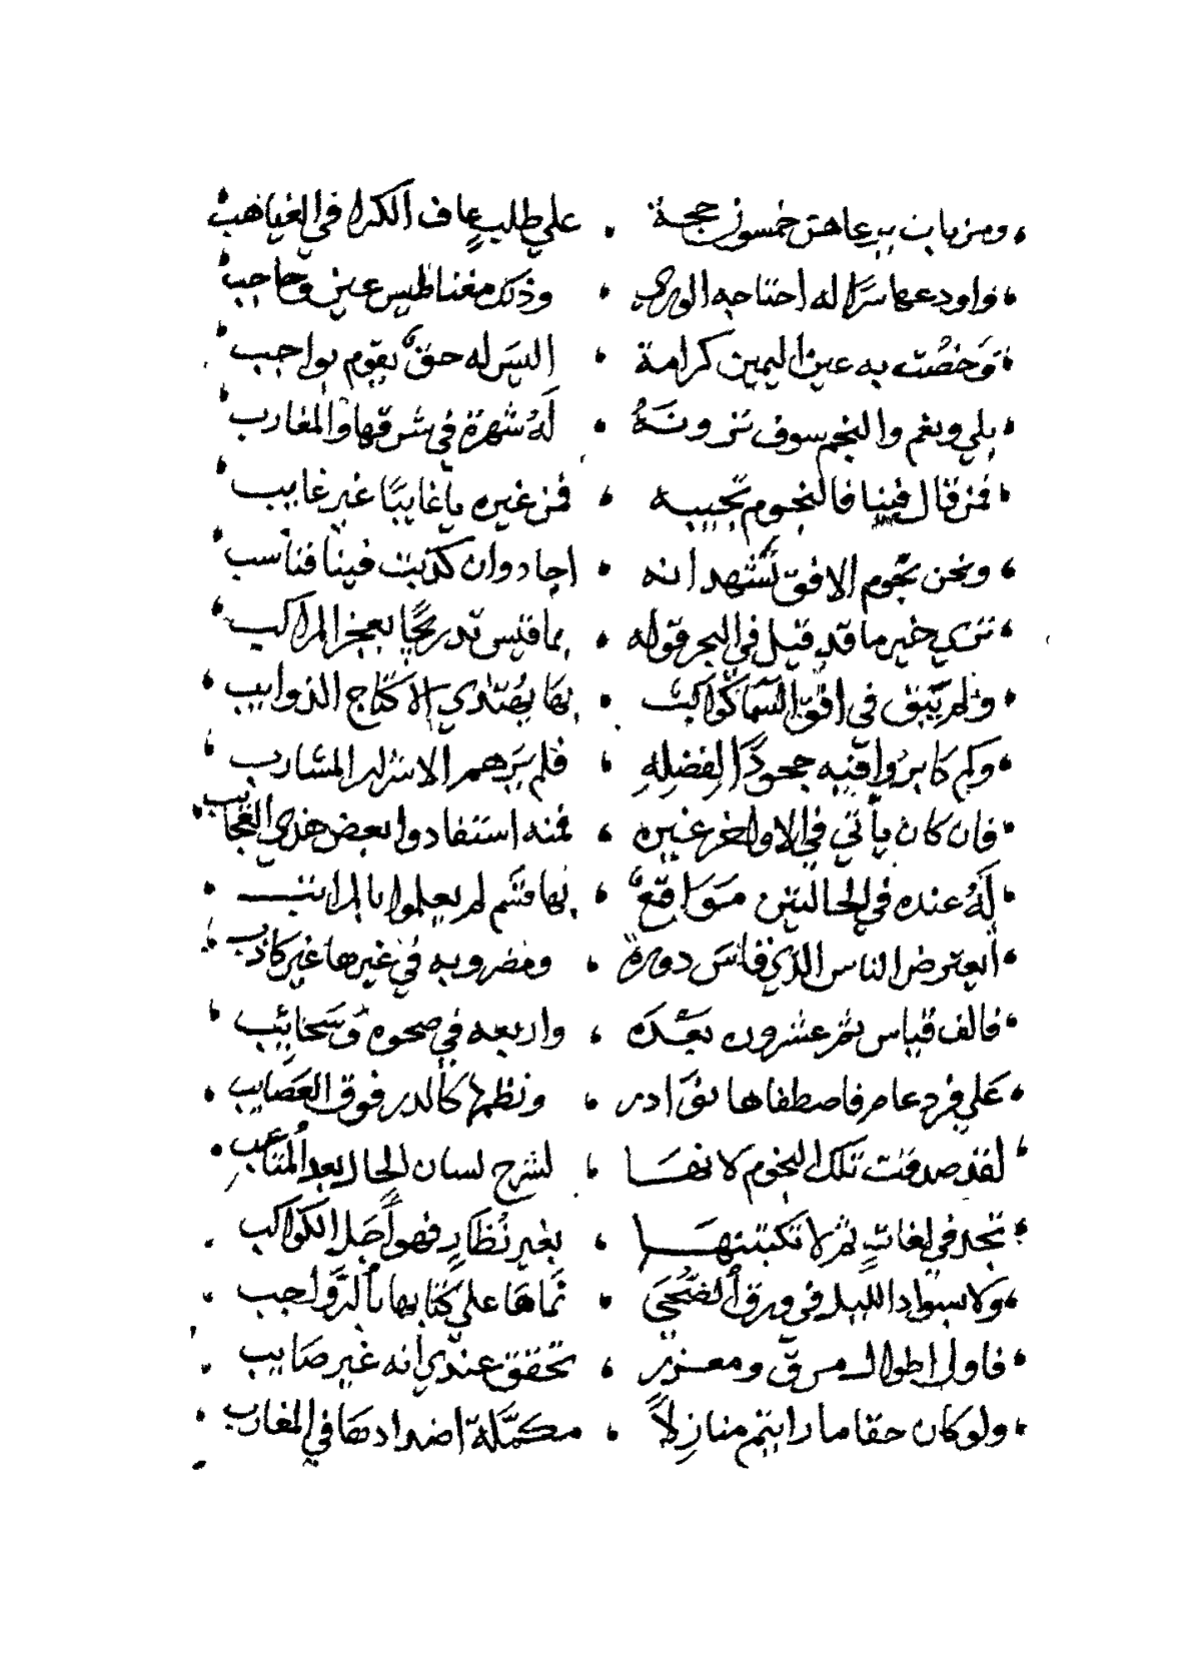 ومن بات يرعاهن خمسون حجة ، على طلب عاف الكرا في الغياهب
واودعها سرا له احتاجه الورى ، وذلك مغناطيس عين وحاجب
وخصت به عين اليمين كرامة ، اليس له حق يقوم بواجب
بلي ونعم والنجم سوف ترونه ، له شهرة في شرقها والمغارب
فمن قال فينا فالنجوم تجيبه ، فمن غيره يا غايبا غير غايب
ونحن نجوم الافق نشهد انه ، اجاد وان كذبت فينا فناسب
ترى خير ما قد قيل في البحر قوله ، بما قيس تدريجا بعجز المراكب
ولم يبق في افق السما كواكب ، بها يقتدي الا كتاج الذوايب
وكم كابروا فيه جحودا لفضله ، فلم يرهم الا سراب المشارب
فان كان يأتي في الاواخر غيره ، فمنه استفادوا بعض هذي العجايب
له عنده في الحالتين مواقع ، بها قسم لم يعلموا بالمراتب
أيعترض الناس الذي قاس دورة ، ومضروبه في غيرها غير كاذب
فالف قياس ثم عشرون بعده ، واربعه في صحوه وسحائب
على فرد عام فاصطفاها نوادر ، ونظمها كالدر فوق العصايب
لقد صدقت تلك النجوم لانها ، لشرح لسان الحال بعد المتاعب
تجد في لغات ثم لا تكتبنها ، بغير نظار فهو أجل الكواكب
ولا بسواد الليل في ورق الضحى ، نماها على كتابها بالرواجب
فاول اطوال مرق ومعزير ، تحقق عندي أنه غير صايب
ولو كان حقا ما رايتم منازلا ، مكملة اضدادها في المغارب